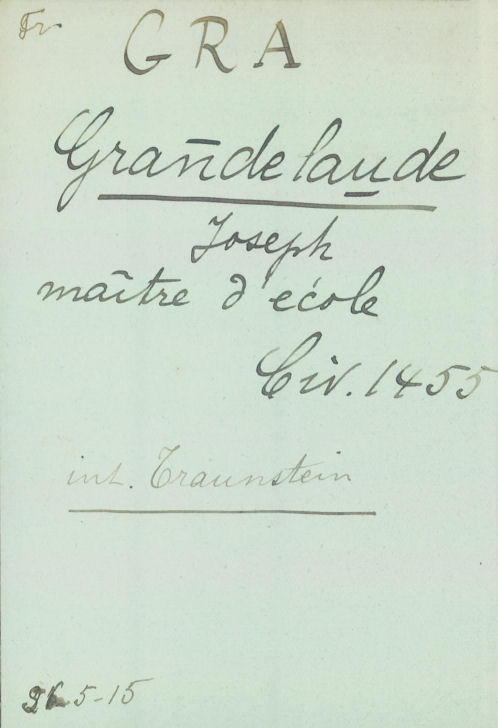 Fr.
GRA
Grandelaude
Joseph
maître d'école
Civ. 1455
int. Traunstein
26-5-15